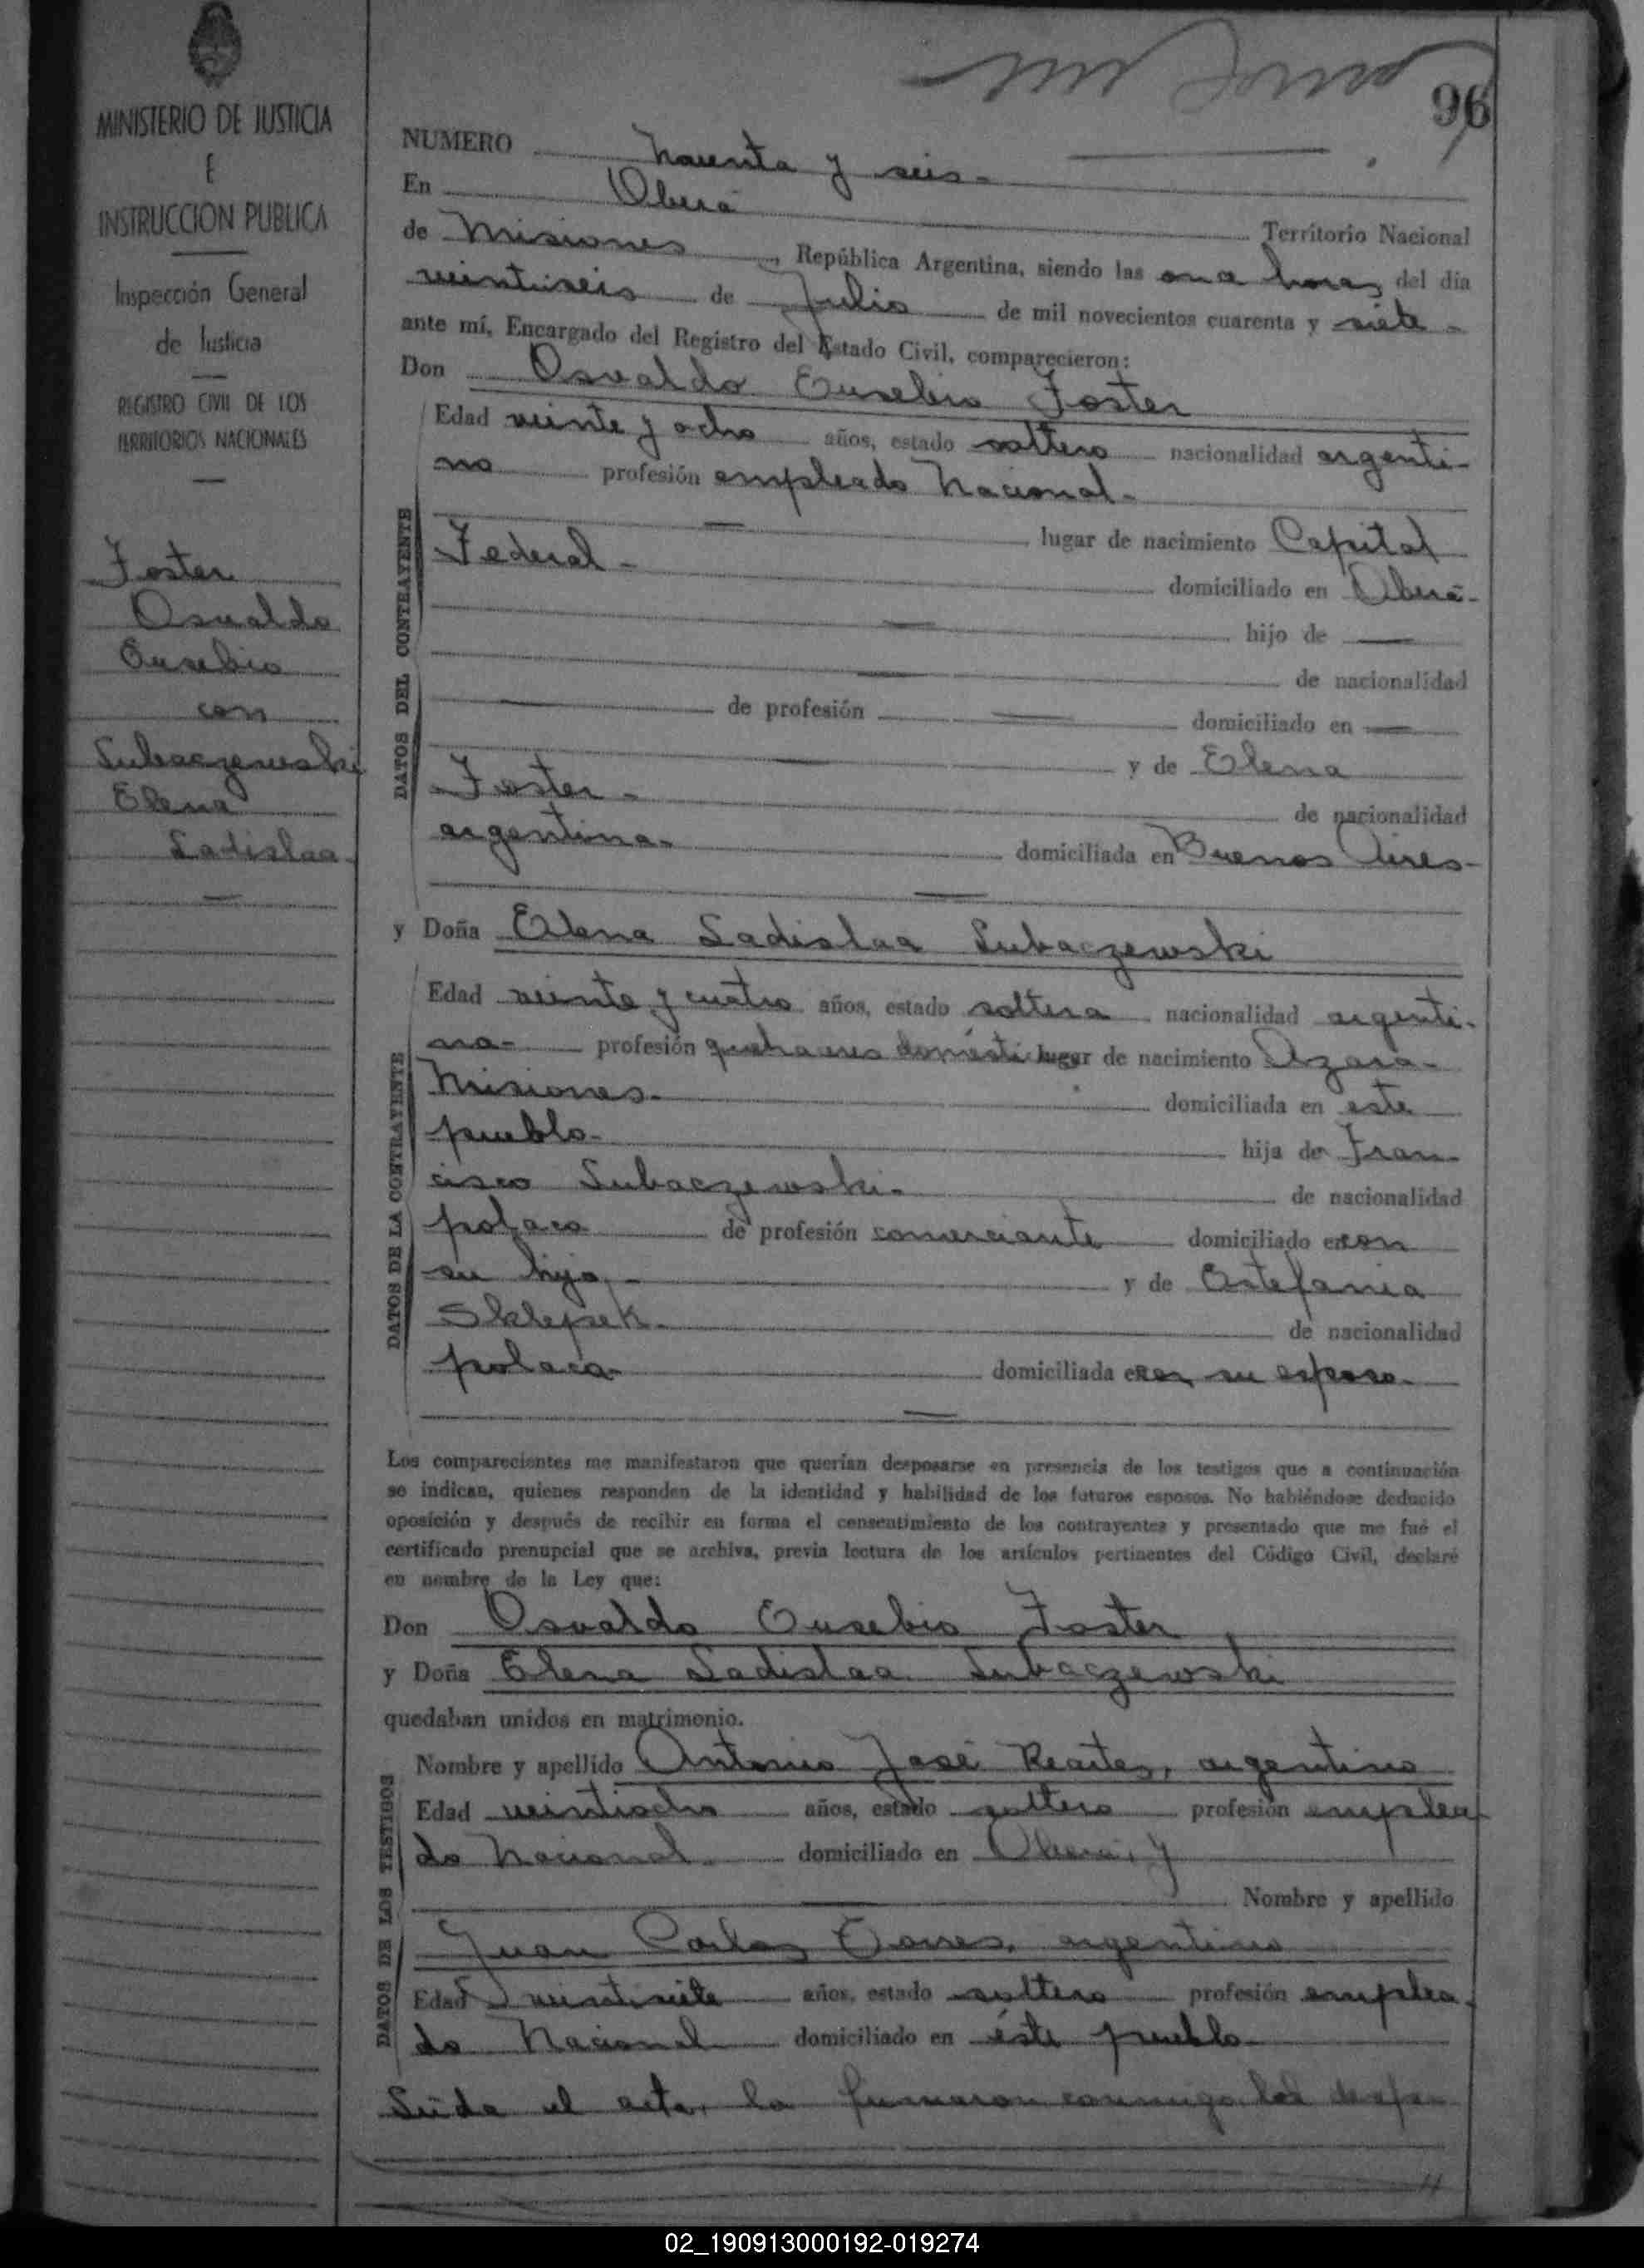 MINISTERIO DE JUSTICIA
E
INSTRUCCION PUBLICA
Inspección General
de Justicia
REGISTRO CIVIL DE LOS
TERRITORIOS NACIONALES
Foster
Osvaldo
Eusebio
con
Lubaczewski
Elena
Ladislaa.
96
NUMERO Noventa y seis.-
En Oberá
Territorio Nacional
de Misiones, República Argentina, siendo las once horas del día
veintiseis de Julio de mil novecientos cuarenta y siete-
ante mí, Encargado del Registro del Estado Civil, comparecieron:
Don Osvaldo Eusebio Foster
DATOS DEL CONTRAYENTE
Edad veinte y ocho años, estado soltero nacionalidad argenti-
no profesión empleado Nacional-
lugar de nacimiento Capital
Federal- domiciliado en Oberá-
hijo de
de nacionalidad
de profesión domiciliado en
y de Elena
Foster- de nacionalidad
argentina- domiciliada en Buenos Aires-
y Doña Elena Ladislaa Lubaczewski
DATOS DE LA CONTRAYENTE
Edad veinte y cuatro años, estado soltera nacionalidad argenti-
na- profesión quehaceres domésti lugar de nacimiento Azara-
Misiones- domiciliada en este
pueblo- hija de Fran-
cisco Lubaczewski- de nacionalidad
polaco de profesión comerciante domiciliado en con
su hija- y de Estefania
Sklepek- de nacionalidad
polaca- domiciliada en con su esposo-
Los comparecientes me manifestaron que querían desposarse en presencia de los testigos que a continuación
se indican, quienes responden de la identidad y habilidad de los futuros esposos. No habiéndose deducido
oposición y después de recibir en forma el consentimiento de los contrayentes y presentado que me fué el
certificado prenupcial que se archiva, previa lectura de los artículos pertinentes del Código Civil, declaré
en nombre de la Ley que:
Don Osvaldo Eusebio Foster
y Doña Elena Ladislaa Lubaczewski
quedaban unidos en matrimonio.
DATOS DE LOS TESTIGOS
Nombre y apellido Antonio José Reartes, argentino
Edad veintiocho años, estado soltero profesión emplea-
do Nacional domiciliado en Oberá, y
Nombre y apellido
Juan Carlos Torres, argentino
Edad veintisiete años, estado soltero profesión emplea-
do Nacional domiciliado en éste pueblo-
Leída el acta, la firmaron conmigo los despo-
02_190913000192-019274